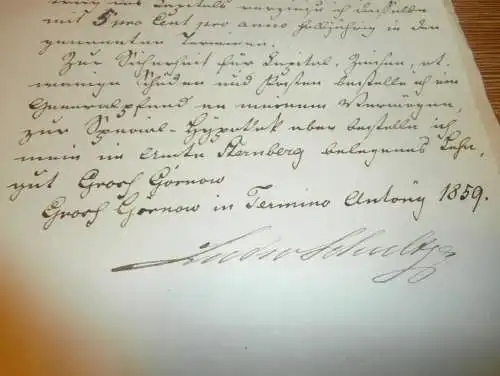 des Capitals verzinse ich dasselbe
mit 5 pro Cent pro anno halbjährig in den
genannten Terminen.
Zur Sicherheit für Capital, Zinsen, et-
wanige Schäden und Kosten bestelle ich ein
Generalpfand an meinem Vermögen,
zur Special-Hypothek aber bestelle ich
mein im Amte Sternberg belegenes Lehn-
gut Gross Görnow
Gross Görnow in Termino Antony 1859.
Schultze